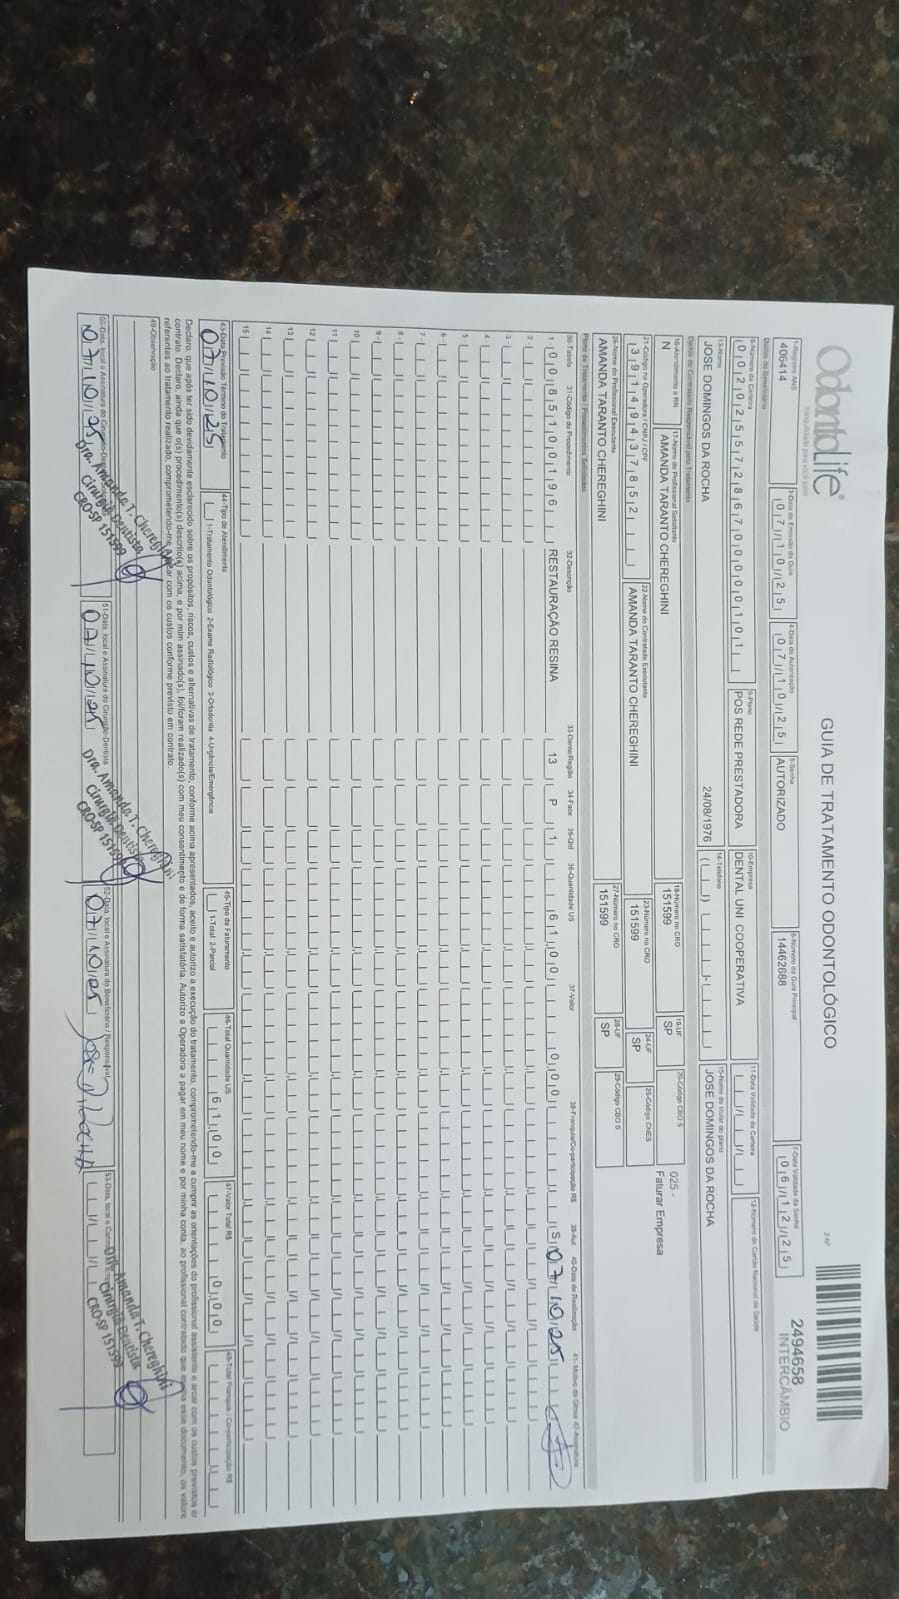 OdontoLife®
tranquilidade para você sorrir
GUIA DE TRATAMENTO ODONTOLÓGICO
2494658
INTERCÂMBIO
1-Registro ANS
406414
3-Data de Emissão da Guia
07/10/25
4-Data da Autorização
07/10/25
5-Senha
AUTORIZADO
6-Número da Guia Principal
14462688
7-Data Validade da Senha
06/12/25
Dados do Beneficiário
8-Número da Carteira
00202557286700000101
9-Plano
POS REDE PRESTADORA
10-Empresa
DENTAL UNI COOPERATIVA
11-Data Validade da Carteira
12-Número do Cartão Nacional de Saúde
13-Nome
JOSE DOMINGOS DA ROCHA
24/08/1976
14-Telefone
15-Nome do titular do plano
JOSE DOMINGOS DA ROCHA
Dados do Contratado Responsável pelo Tratamento
16-Atendimento a RN
N
17-Nome do Profissional Solicitante
AMANDA TARANTO CHEREGHINI
18-Número no CRO
151599
19-UF
SP
20-Código CBO S
025 -
Faturar Empresa
21-Código na Operadora / CNPJ / CPF
39149437852
22-Nome do Contratado Executante
AMANDA TARANTO CHEREGHINI
23-Número no CRO
151599
24-UF
SP
25-Código CNES
26-Nome do Profissional Executante
AMANDA TARANTO CHEREGHINI
27-Número no CRO
151599
28-UF
SP
29-Código CBO S
Plano de Tratamento / Procedimentos Solicitados
30-Tabela 31-Código do Procedimento 32-Descrição 33-Dente/Região 34-Face 35-Qtd 36-Quantidade US 37-Valor 38-Franquia/Co-participação R$ 39-Aut 40-Data de Realização 41- Motivo da Glosa 42-Assinatura
1- 00 85100196 RESTAURAÇÃO RESINA 13 P 1 61,00 0,00 S 07/10/25
2-
3-
4-
5-
6-
7-
8-
9-
10
11
12
13
14
15
43-Data Previsão Término do Tratamento
07/10/25
44-Tipo de Atendimento
1-Tratamento Odontológico 2-Exame Radiológico 3-Ortodontia 4-Urgência/Emergência
45-Tipo de Faturamento
1-Total 2-Parcial
46-Total Quantidade US
61,00
47-Valor Total R$
0,00
48-Total Franquia / Co-participação R$
Declaro, que após ter sido devidamente esclarecido sobre os propósitos, riscos, custos e alternativas de tratamento, conforme acima apresentados, aceito e autorizo a execução do tratamento, comprometendo-me a cumprir as orientações do profissional assistente e arcar com os custos previstos em
contrato. Declaro, ainda que o(s) procedimento(s) descrito(s) acima, e por mim assinado(s), foi/foram realizado(s) com meu consentimento e de forma satisfatória. Autorizo a Operadora a pagar em meu nome e por minha conta, ao profissional contratado que assina esse documento, os valores
referentes ao tratamento realizado, comprometendo-me a arcar com os custos conforme previsto em contrato.
49-Observação
50-Data, local e Assinatura do Cirurgião-Dentista
07/10/25
Dra. Amanda T. Chereghini
Cirurgiã Dentista
CRO-SP 151599
51-Data, local e Assinatura do Cirurgião-Dentista
07/10/25
Dra. Amanda T. Chereghini
Cirurgiã Dentista
CRO-SP 151599
52-Data, local e Assinatura do Beneficiário / Responsável
07/10/25
53-Data, local e Carimbo
Dra. Amanda T. Chereghini
Cirurgiã Dentista
CRO-SP 151599